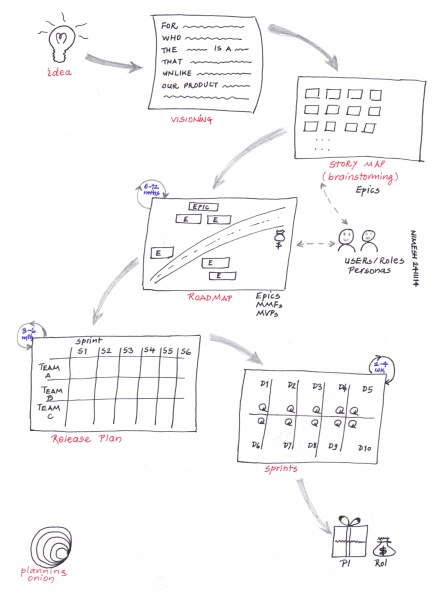 idea
FOR
WHO
THE IS A
THAT
UNLIKE
OUR PRODUCT
VISIONING
STORY MAP
(brainstorming)
Epics
6-12
mnths
EPIC
E E
E
E
E
$
ROADMAP
Epics
MMFs
MVPs
USERS/Roles
Personas
NIMESH 24/11/14
3-6
mths
Sprint
S1 S2 S3 S4 S5 S6
TEAM
A
TEAM
B
TEAM
C
Release Plan
2-4
wk
D1 D2 D3 D4 D5
Q Q Q Q Q
Q Q Q Q Q
D6 D7 D8 D9 D10
Sprints
PI
$
RoI
planning
onion